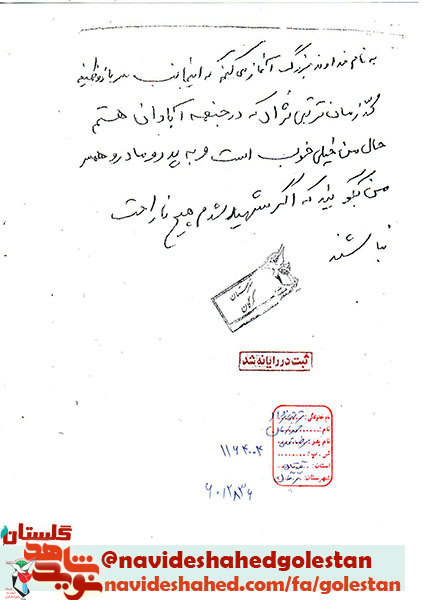 به نام خداوند بزرگ آغاز می‌کنم که اینجانب سرباز وظیفه
محمد زمان تربتی نژاد که در جبهه آبادان هستم
حال من خیلی خوب است و به پدر و مادر و همسر
من بگویید که اگر شهید شدم هیچ ناراحت
نباشند
شهرستان
گرگان
ثبت در رایانه شد
نام خانوادگی:
نام:
نام پدر:
ش . پ:
استان:
شهرستان:
۱۱۶۴۰۰۴
۶۰/۲۸۳۶
گلستان
نوید شاهد
@navideshahedgolestan
navideshahed.com/fa/golestan